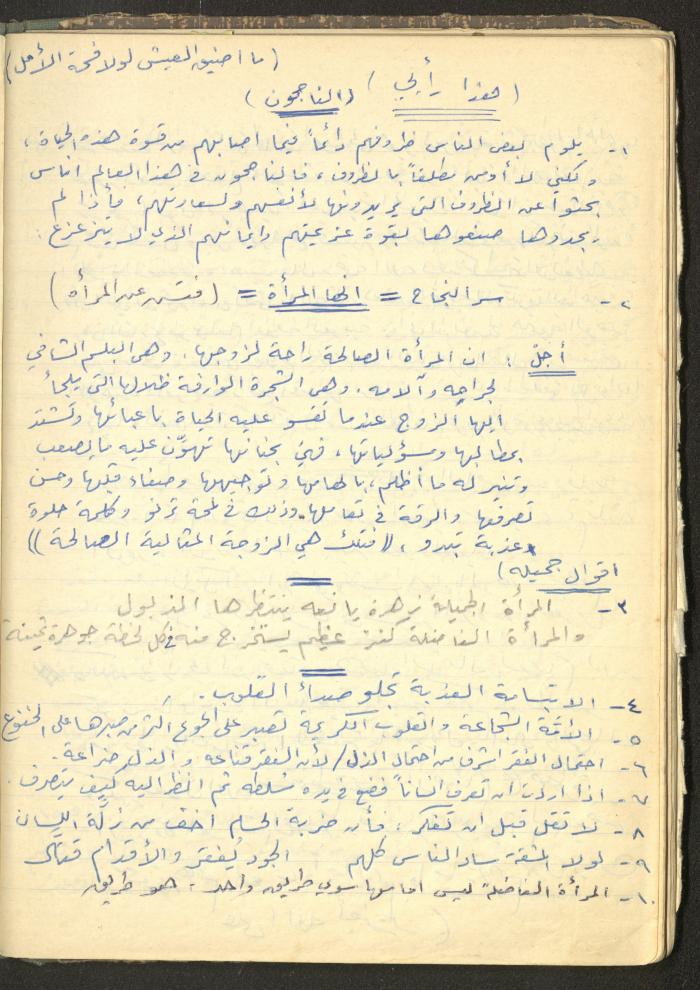 (ما اضيق العيش لولا فسحة الأمل)
(هذا رأيي) (الناجحون)
١- يلوم بعض الناس ظروفهم دائماً فيما اصابهم من قسوة هذه الحياة،
ولكني لا أومن مطلقاً بالظروف، فالناجحون في هذا العالم اناس
بحثوا عن الظروف التي يريدونها لأنفسهم ولسعادتهم، فأذا لم
يجدوها صنعوها بقوة عزيمتهم وايمانهم الذي لا يتزعزع.
٢- سر النجاح = انها المرأة = (فتش عن المرأة)
أجل: ان المرأة الصالحة راحة لزوجها. وهي البلسم الشافي
لجراحه وآلامه. وهي الشجرة الوارفة ظلالها التي يلجأ
اليها الزوج عندما تقسو عليه الحياة باعبائها وتشتد
بمطالبها ومسؤلياتها، فهي بحنانها تهوّن عليه ما يصعب
وتنير له ما أظلم، بالهامها وتوجيهها وصفاء قلبها وحسن
تصرفها والرقة في تعاملها. وذلك في لمحة ترنو وكلمة حلوة
وعذبة تبدو، ((فتلك هي الزوجة المثالية الصالحة))
اقوال جميله)
٣- المرأة الجميلة زهرة يانعه ينتظرها الذبول
والمرأة الفاضلة كنز عظيم يستخرج منه في كل لحظة جوهرة ثمينة
٤- الابتسامة العذبة تجلو صداء القلوب.
٥- الأمة الشجاعة والقلوب الكريمة تصبر على الجوع اكثر من صبرها على الخنوع
٦- احتمال الفقر اشرف من احتمال الذل/ لأن الفقر قناعه والذل ضراعة.
٧- اذا اردت ان تعرف انساناً فضع في يده سُلطه ثم انظر اليه كيف يتصرف.
٨- لا تقل قبل ان تفكر، فأن ضربة الحسام اخف من زلة اللسان
٩- لولا المشقة ساد الناس كلهم الجود يُفقر والأقدام قتال
١٠- المرأة الفاضلة ليس امامها سوى طريق واحد. هو طريق